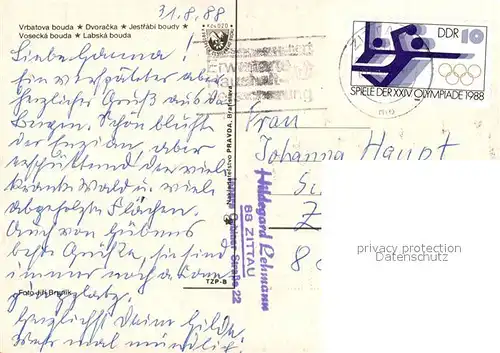 31.8.88
Vrbatova bouda ★ Dvoračka ★ Jestřábí boudy ★
Vosecká bouda ★ Labská bouda
Liebe Hanna!
Ein verspäteter aber
herzlicher Gruß aus den
Bergen. Schön blüht
der Enzian, aber
erschütternd der viele
kranke Wald u. viele
abgeholzte Flächen.
Auch von Hübners
beste Grüße, sie sind
immer noch a.
Foto Jiří
Herzlichst Deine Hilde.
mal mündlich!
Nakladatelství PRAVDA, Bratislava
TZP-B
DDR 10
SPIELE DER XXIV. OLYMPIADE 1988
Frau
Johanna Haupt
Z
8
Hildegard Lehmann
88 ZITTAU
Straße 22
privacy protection
Datenschutz